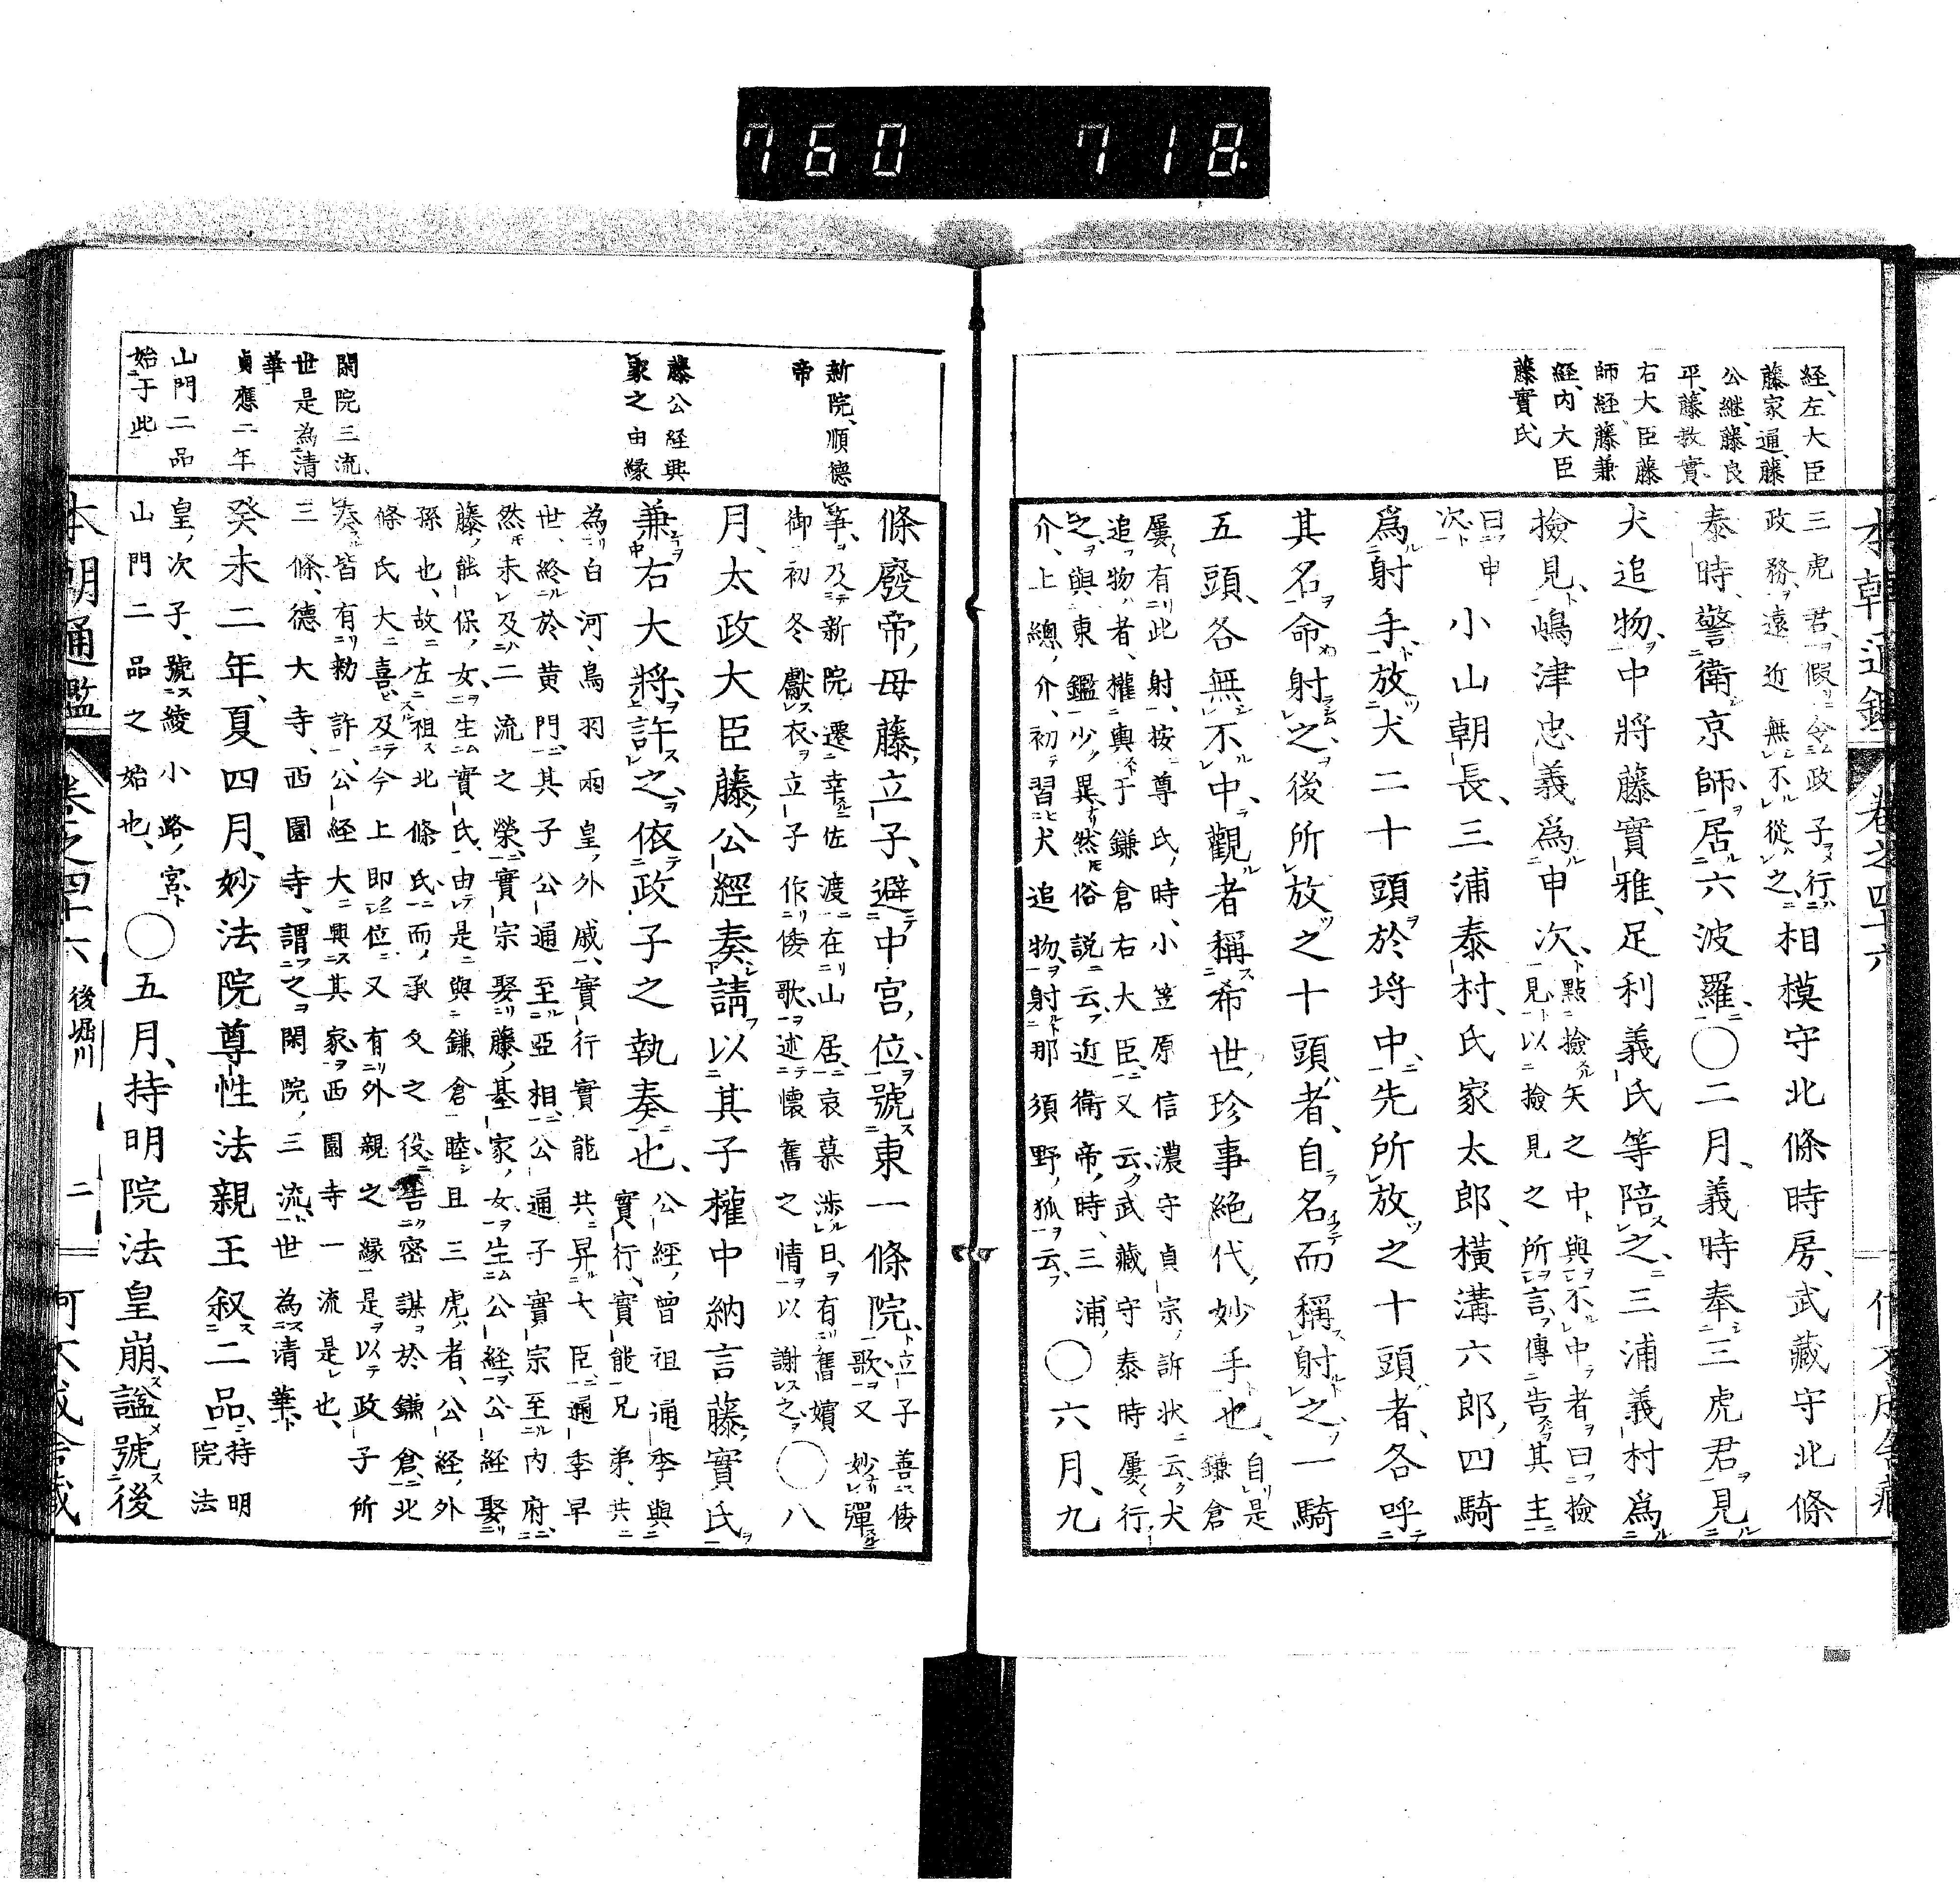 760 718.
経、左大臣
藤家通、藤
公継、藤良
平、藤教實、
右大臣藤
師経藤兼
経、內大臣
藤實氏
三虎君、假令政子行
政務、遠近無不從之、
相模守北條時房、武藏守北條
泰時、警衛京師、居六波羅、〇二月、義時奉三虎君見
犬追物、中將藤實雅、足利義氏等陪之、三浦義村爲
撿見、嶋津忠義爲申次、
點撿矢之中與不中者曰撿
見、以撿見之所言、傳告其主
曰申
次
小山朝長、三浦泰村、氏家太郎、橫溝六郎、四騎
爲射手、放犬二十頭於埒中、先所放之十頭者、各呼
其名命射之、後所放之十頭者、自名而稱射之、一騎
五頭、各無不中、觀者稱希世珍事絶代妙手也、
自是
鎌倉
屢有此射、按尊氏時、小笠原信濃守貞宗訴状云、犬
追物者、權輿于鎌倉右大臣、又云、武藏守泰時屢行
之、與東鑑少異、然俗説云、近衛帝時、三浦
介、上總介、初習犬追物、射那須野狐云、
〇六月、九
新院、順德
帝
藤公経興
家之由緣
閑院三流、
世是為清
華
貞應二年
山門二品
始于此
條廢帝母藤立子、避中宮位、號東一條院、
立子善倭
歌又妙彈
箏、及新院遷幸佐渡、在山居、哀慕渉日、有舊嬪
御、初冬獻衣、立子作倭歌、述懷舊之情、以謝之、
〇八
月、太政大臣藤公經奏請以其子權中納言藤實氏
兼右大將、許之、依政子之執奏也、
公経曾祖通季與
實行、實能兄弟、共
為白河、鳥羽兩皇外戚、實行實能共昇大臣、通季早
世、終於黄門、其子公通至亞相、公通子實宗至內府、
然未及二流之榮、實宗娶藤基家女、生公経、公経娶
藤能保女、生實氏、由是與鎌倉睦、且三虎者、公経外
孫也、故左祖北條氏、而承久之役、密謀於鎌倉、北
條氏大喜、及今上即位、又有外親之緣、是以政子所
奏皆有勅許、公経大興其家、西園寺一流是也、
三條、德大寺、西園寺、謂之閑院三流、世為清華、
癸未二年、夏四月、妙法院尊性法親王叙二品、
持明
院法
皇次子、號綾小路宮、
山門二品之始也、
〇五月、持明院法皇崩、謚號後
本朝通鑑 卷之四十六 後堀川 二